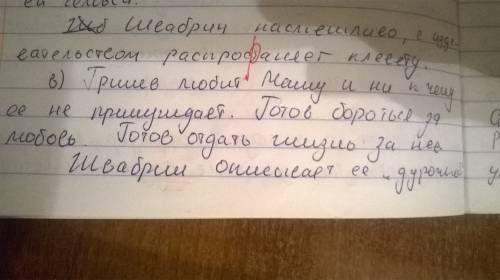 ей семьи.
Швабрин насмешливо, с изде
вательством распространяет клевету.
в) Гринев любит Машу и ни к чему
ее не принуждает. Готов бороться за
любовь. Готов отдать жизнь за нее
Швабрин описывает ее "дурочкой